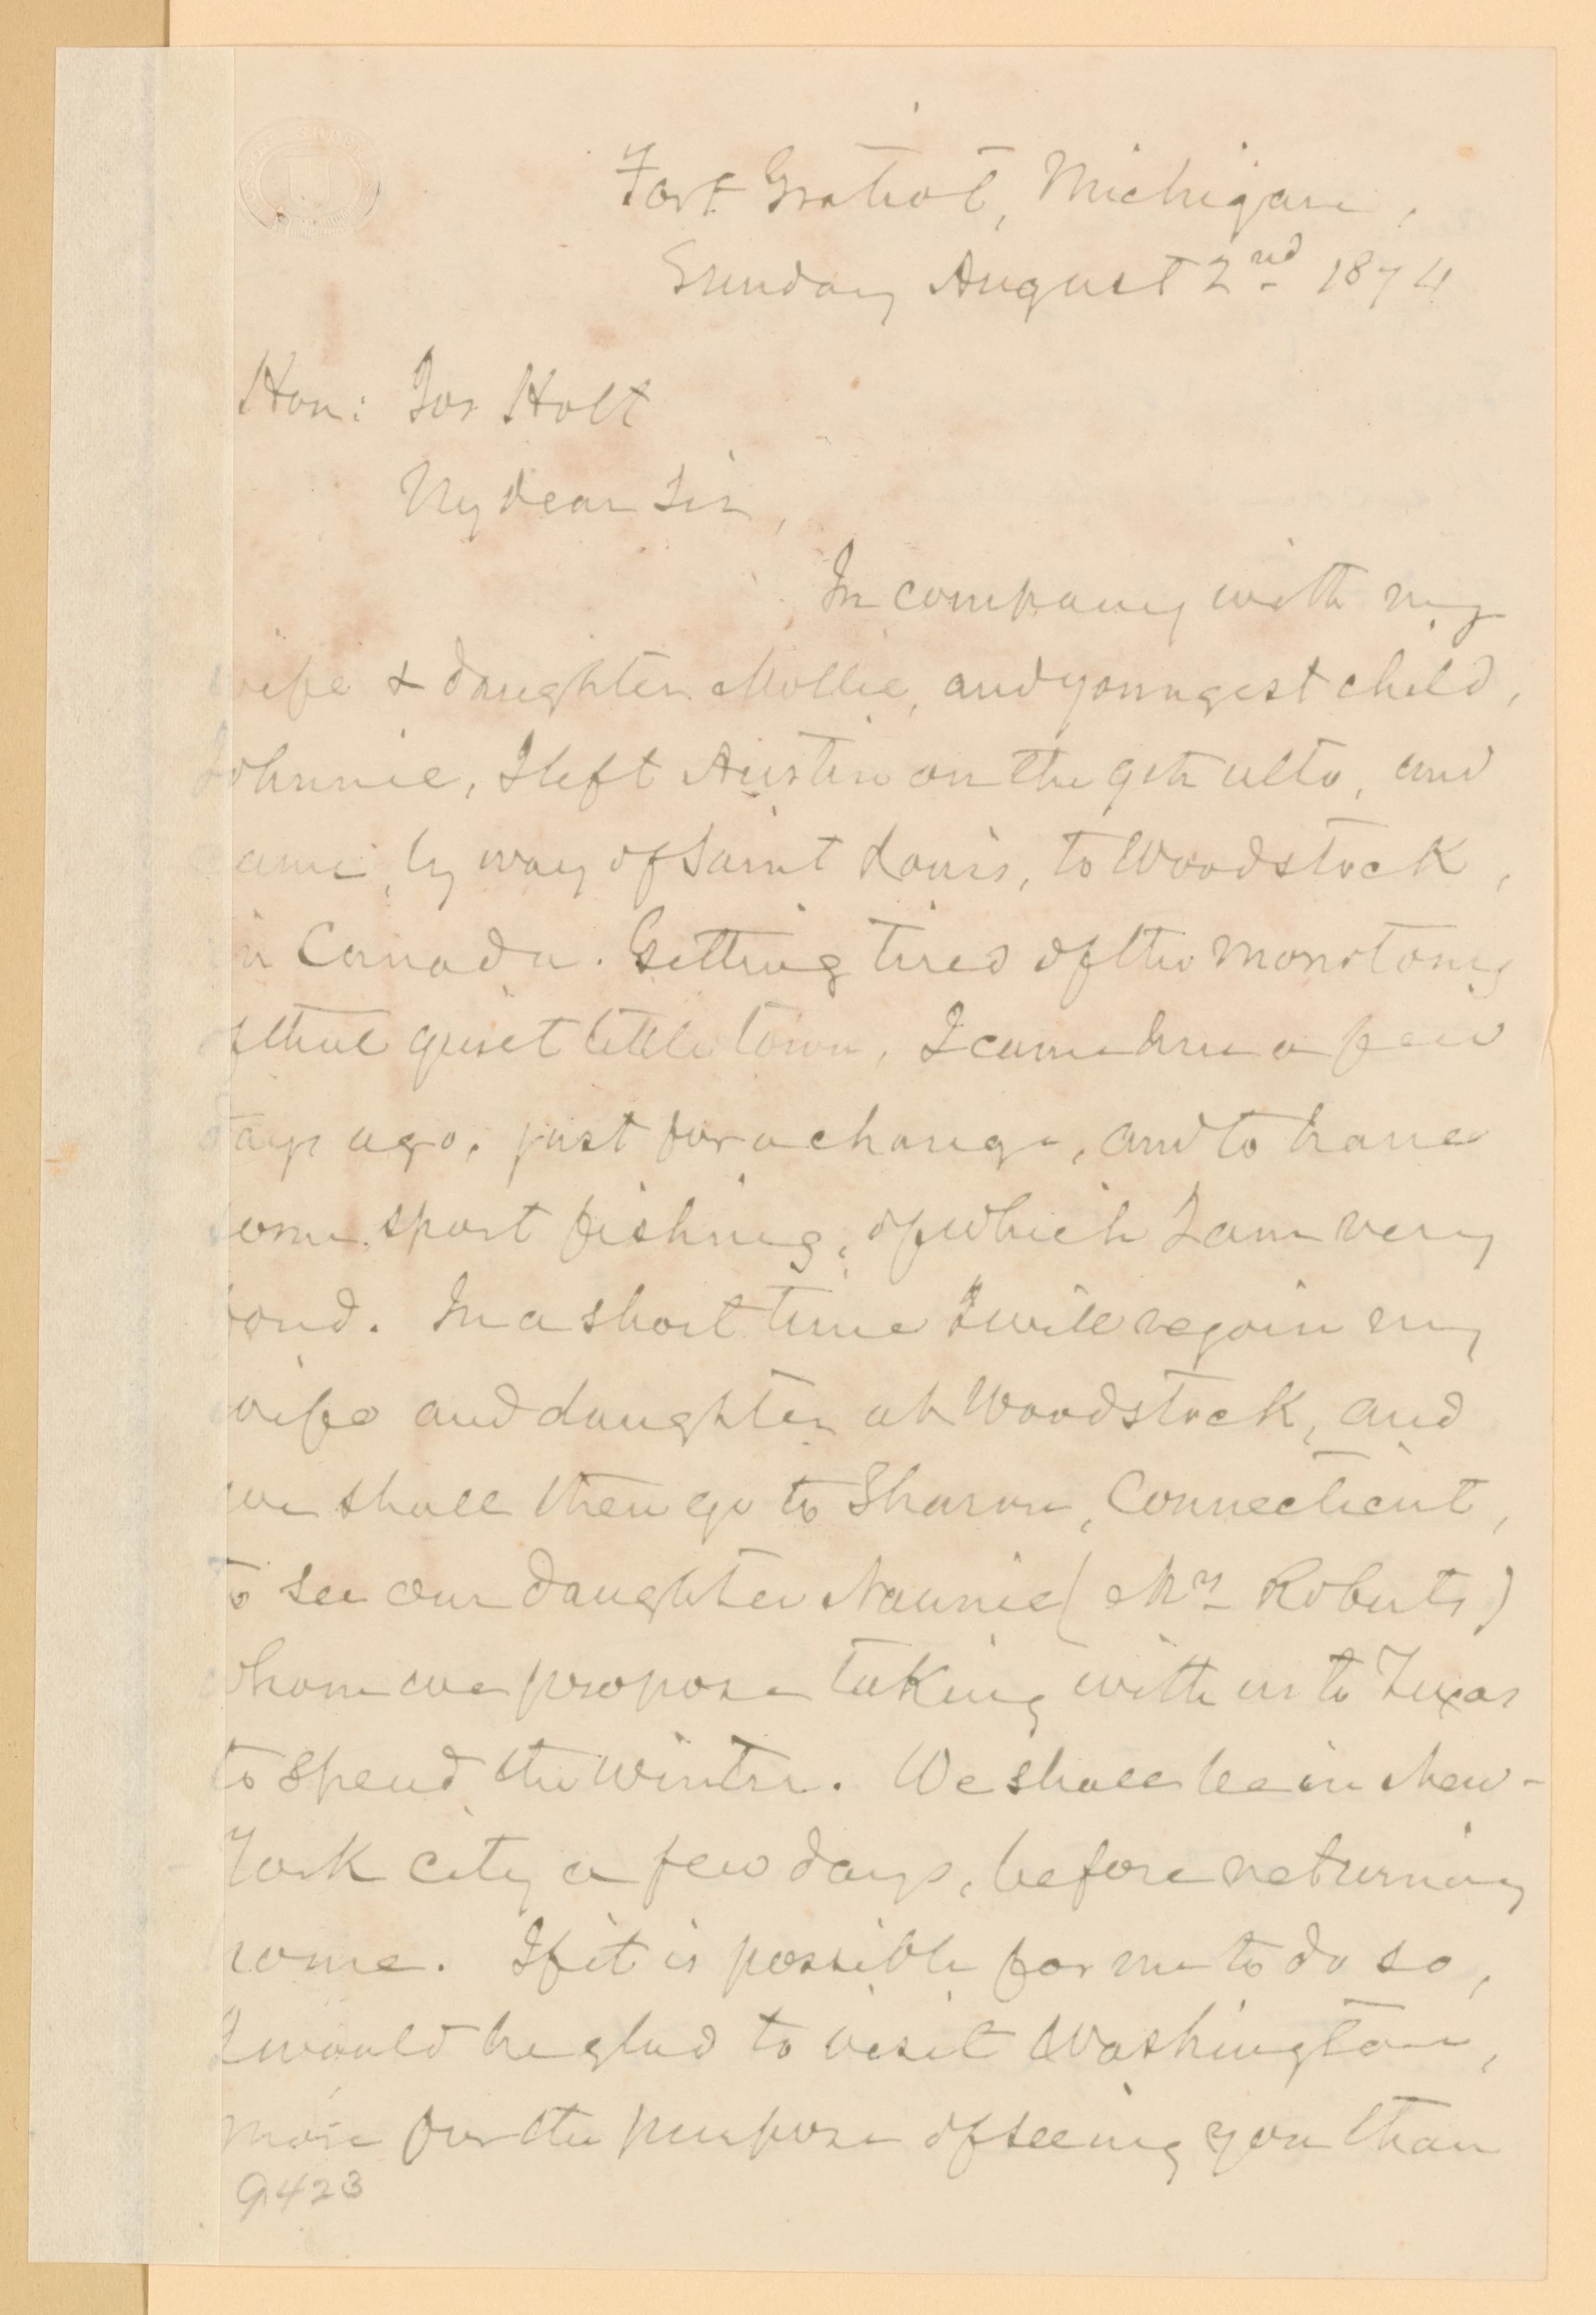 Fort Gratiot, Michigan,
Sunday August 2nd 1874
Hon: Jos Holt
My dear Sir,
In company with my
wife & daughter Mollie, and youngest child,
Johnnie, I left Austin on the 9th ulto, and
came, by way of Saint Louis, to Woodstock,
in Canada. Getting tired of the monotony
of that quiet little town, I came here a few
days ago, just for a change, and to have
some sport fishing, of which I am very
fond. In a short time I will rejoin my
wife and daughter at Woodstock, and
we shall then go to Sharon, Connecticut,
to see our daughter Nannie (Mrs Roberts)
whom we propose taking with us to Texas
to spend the winter. We shall be in New-
York city a few days, before returning
home. If it is possible for me to do so,
I would be glad to visit Washington,
more for the purpose of seeing you than
9423